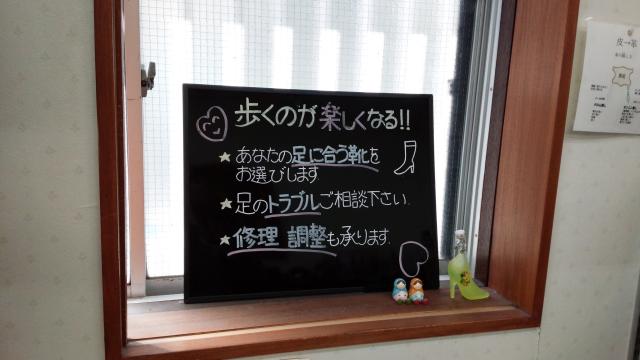 歩くのが楽しくなる!!
★あなたの足に合う靴を
お選びします
★足のトラブルご相談下さい.
★修理 調整も承ります.
皮→革